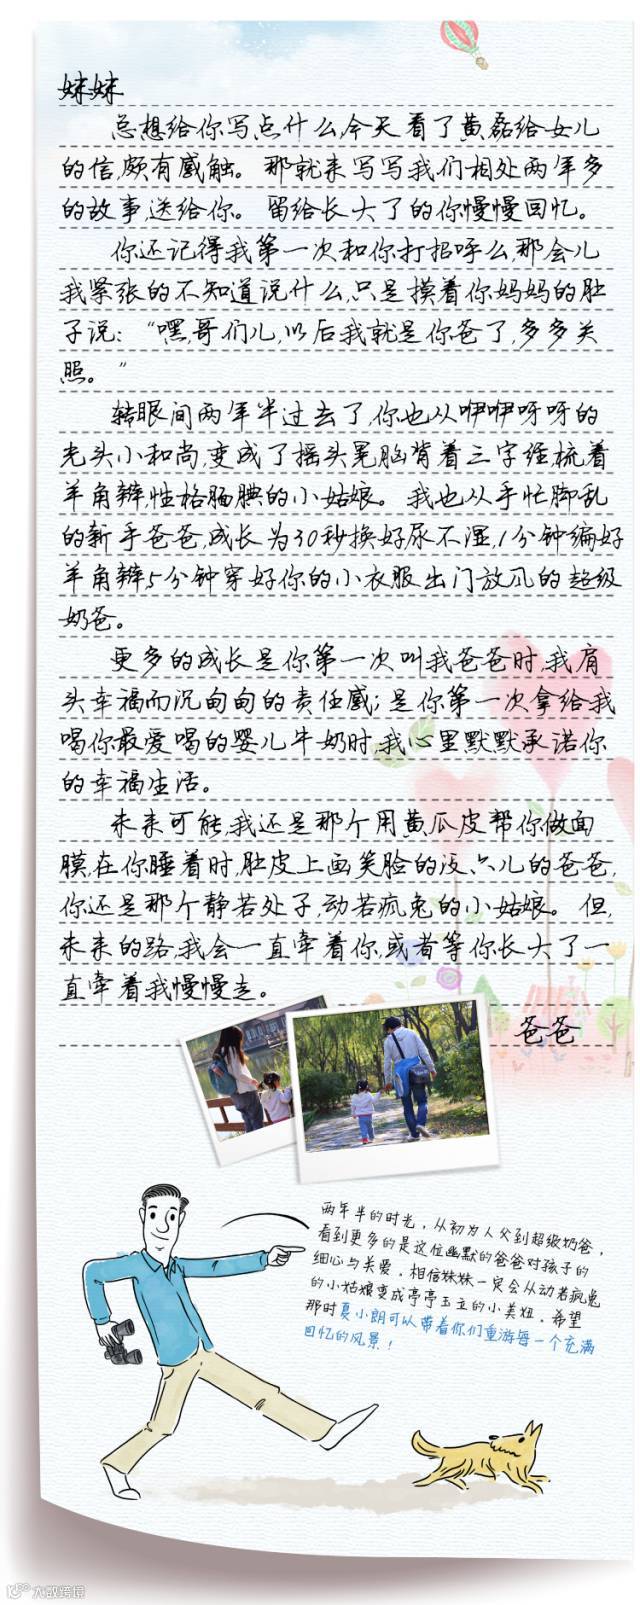 妹妹
总想给你写点什么,今天看了黄磊给女儿
的信,颇有感触。那就来写写我们相处两年多
的故事,送给你。留给长大了的你慢慢回忆。
你还记得我第一次和你打招呼么,那会儿
我紧张的不知道说什么,只是摸着你妈妈的肚
子说：“嘿,哥们儿,以后我就是你爸了,多多关
照。”
转眼间两年半过去了,你也从咿咿呀呀的
光头小和尚,变成了摇头晃脑背着三字经,梳着
羊角辫,性格腼腆的小姑娘。我也从手忙脚乱
的新手爸爸,成长为30秒换好尿不湿,1分钟编好
羊角辫5分钟穿好你的小衣服出门放风的超级
奶爸。
更多的成长是你第一次叫我爸爸时,我肩
头幸福而沉甸甸的责任感;是你第一次拿给我
喝你最爱喝的婴儿牛奶时,我心里默默承诺你
的幸福生活。
未来可能,我还是那个用黄瓜皮帮你做面
膜,在你睡着时,肚皮上画笑脸的没六儿的爸爸,
你还是那个静若处子,动若疯兔的小姑娘。但,
未来的路,我会一直牵着你,或者等你长大了一
直牵着我慢慢走。
爸爸
两年半的时光，从初为人父到超级奶爸，
看到更多的是这位幽默的爸爸对孩子的
细心与关爱，相信妹妹一定会从动若疯兔
的小姑娘变成亭亭玉立的小美妞，希望
那时夏小朗可以带着你们重游每一个充满
回忆的风景！
大数跨境